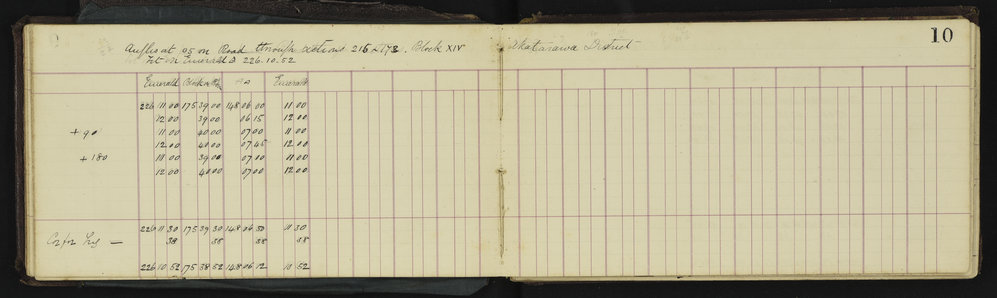 10
Angles at 95 on Road through Sections 216 & 173. Block XIV Akatarawa District
Set on Emerald @ 226.10.52
Emerald 40 Emerald
226 11 00 175 39 00 148 06 00 11 00
12 00 39 00 06 15 12 00
+ 90 11 00 40 00 07 00 11 00
12 00 40 00 07 45 12 00
+ 180 11 00 39 00 07 00 11 00
12 00 40 00 07 00 12 00
226 11 30 175 39 30 148 06 50 11 30
Cor for — 38 38 38 38
226 10 52 175 38 52 148 06 12 10 52